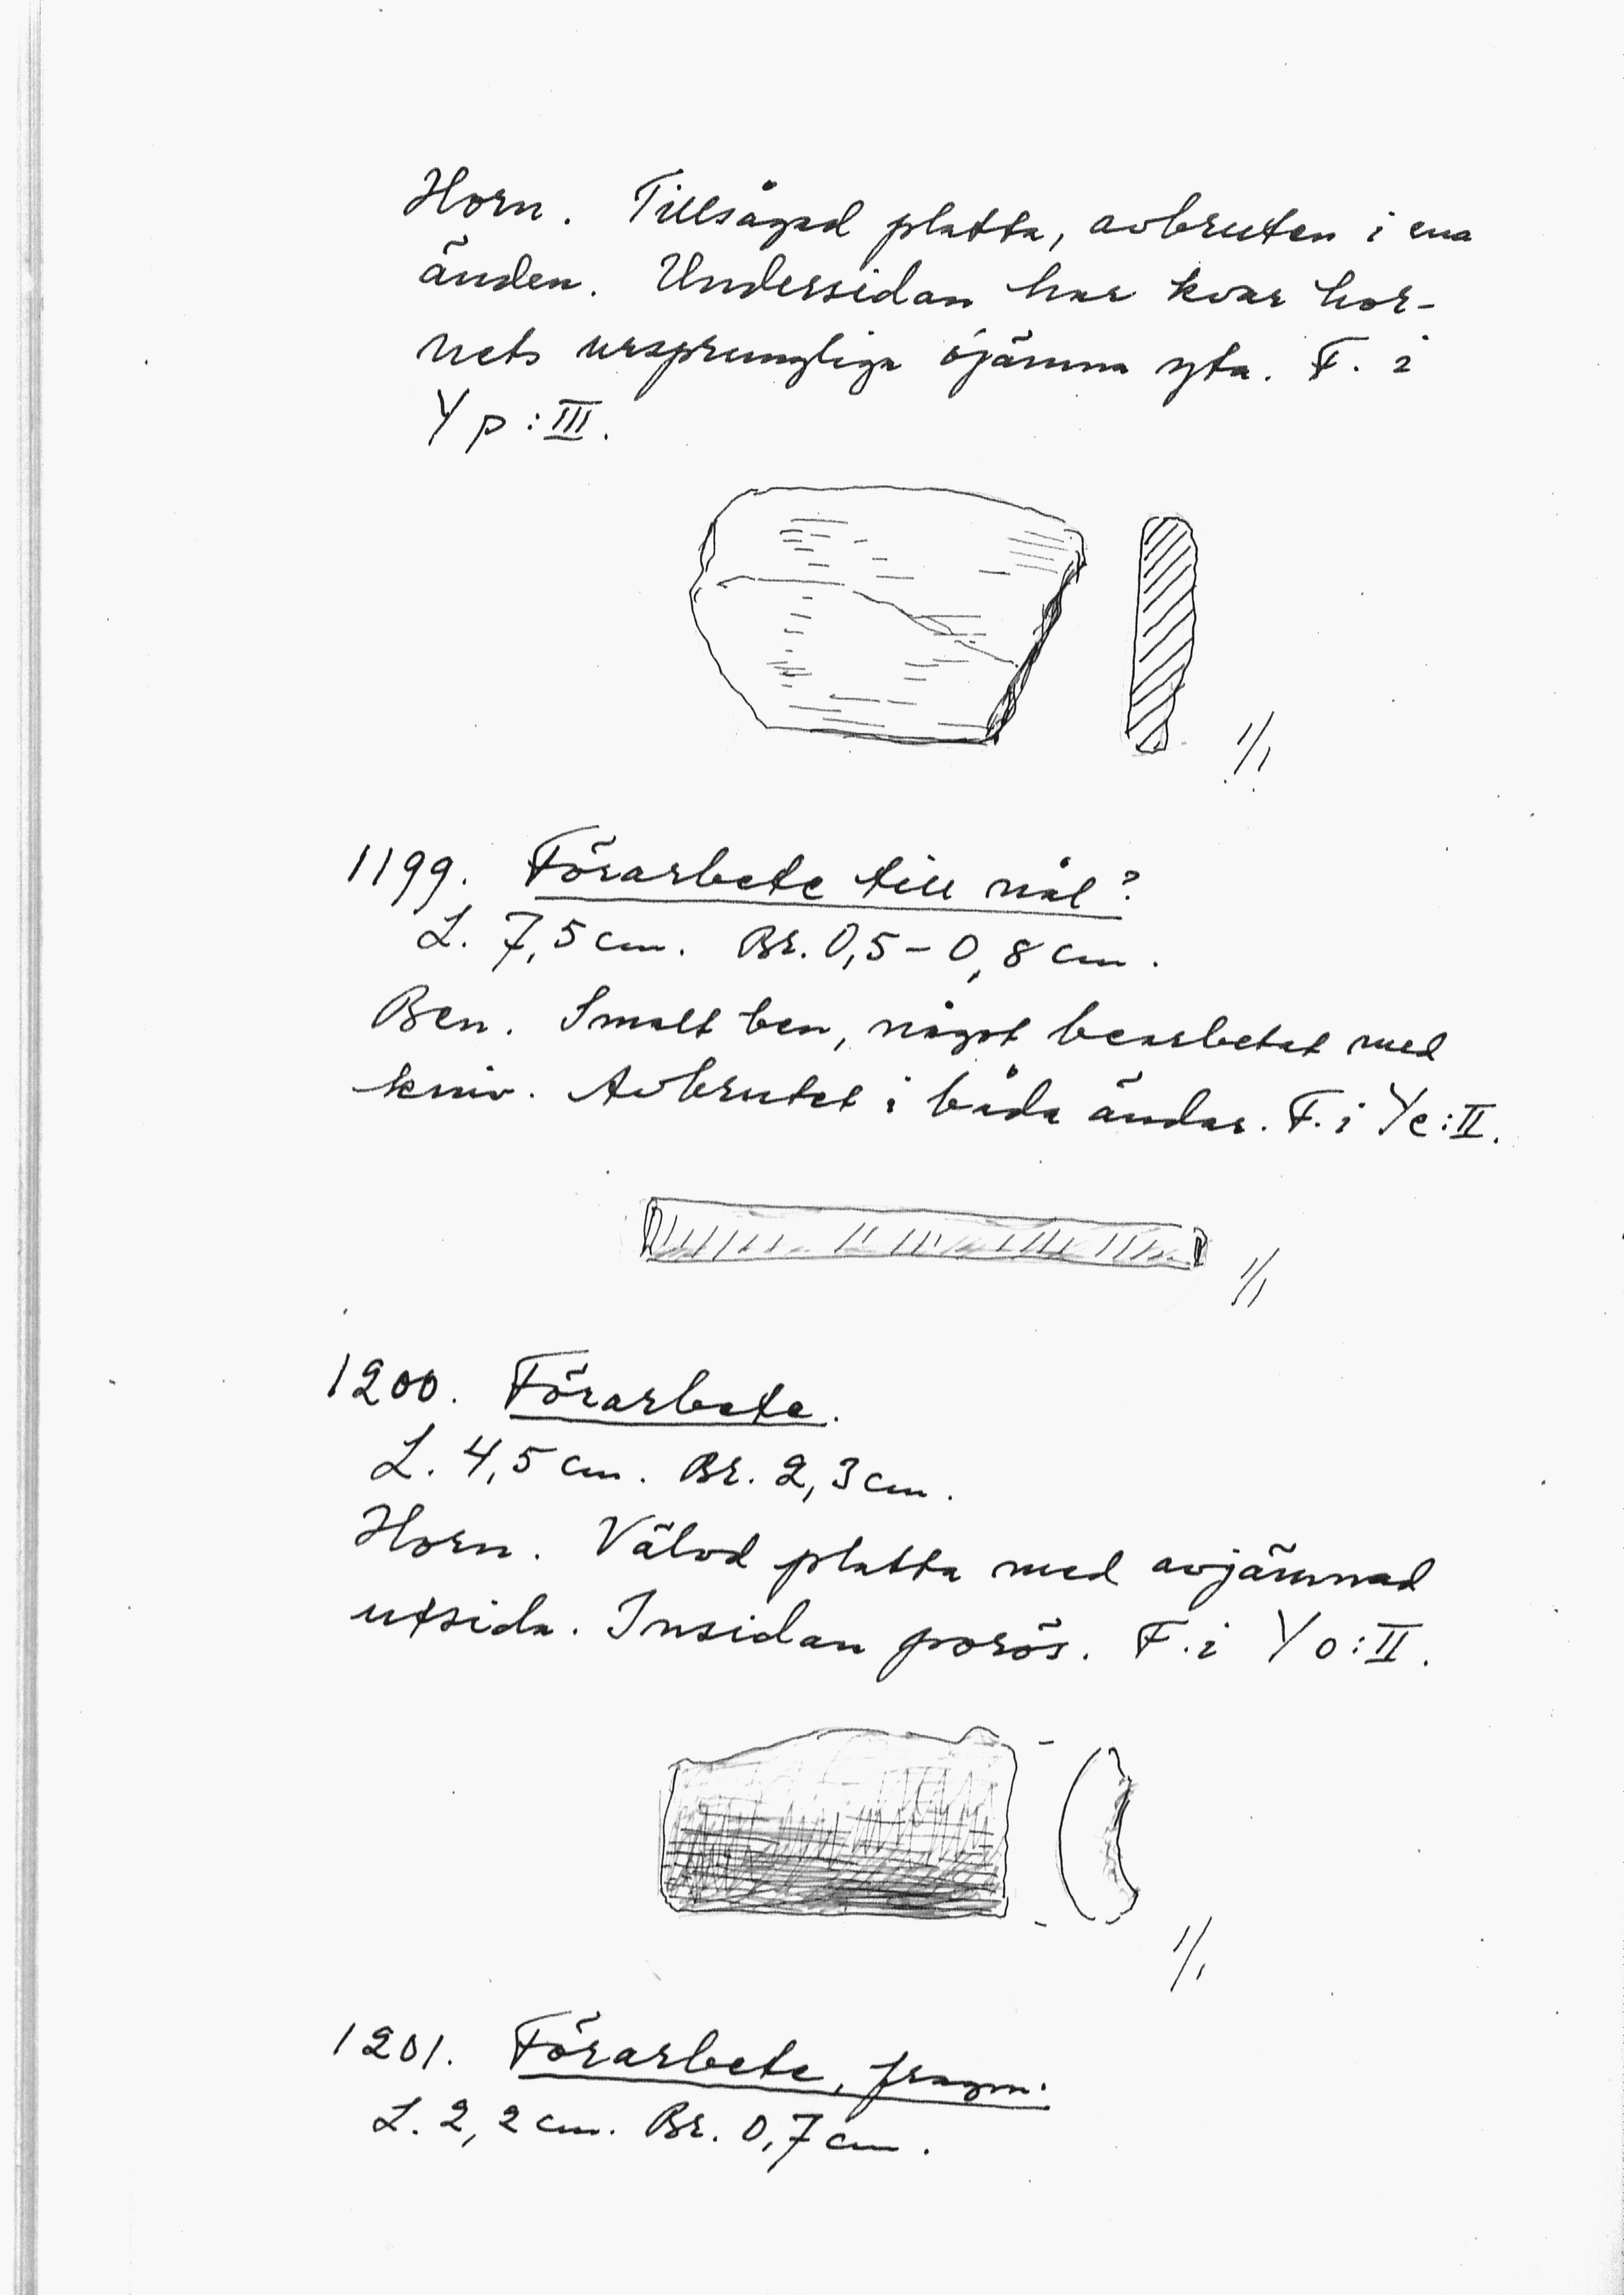 Horn. Tillsågad platta, avbruten i ena
änden. Undersidan har kvar hor-
nets ursprungliga ojämna yta. F. i
Yp:III.
1/1
1199. Förarbete till nål?
L. 7,5 cm. Br. 0,5-0,8 cm.
Ben. Smalt ben, något bearbetat med
kniv. Avbrutet i båda ändar. F. i Ye:II.
1/1
1200. Förarbete.
L. 4,5 cm. Br. 2,3 cm.
Horn. Välvd platta med avjämnad
utsida. Insidan porös. F. i Yo:II.
1/1
1201. Förarbete, fragm.
L. 2,2 cm. Br. 0,7 cm.